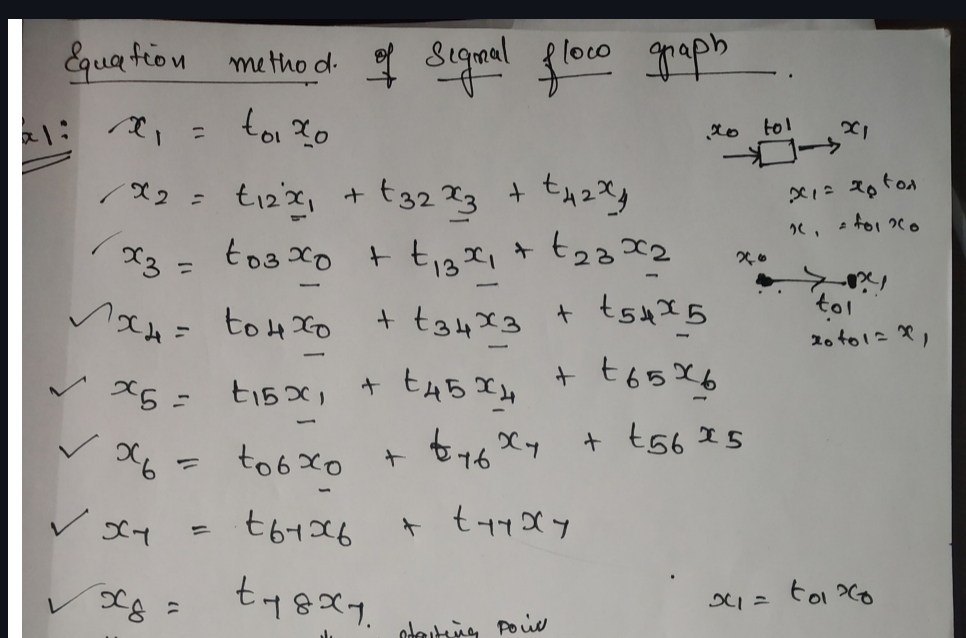 Equation method. of Signal flow graph.
x1: x₁ = t₀₁x₀
x₂ = t₁₂x₁ + t₃₂x₃ + t₄₂x₄
x₃ = t₀₃x₀ + t₁₃x₁ + t₂₃x₂
x₄ = t₀₄x₀ + t₃₄x₃ + t₅₄x₅
x₅ = t₁₅x₁ + t₄₅x₄ + t₆₅x₆
x₆ = t₀₆x₀ + t₇₆x₇ + t₅₆x₅
x₇ = t₆₇x₆ + t₇₇x₇
x₈ = t₇₈x₇.
starting point
x₀ t₀₁ x₁
x₁ = x₀t₀₁
x₁ = t₀₁x₀
x₀ x₁
t₀₁
x₀t₀₁ = x₁
x₁ = t₀₁x₀